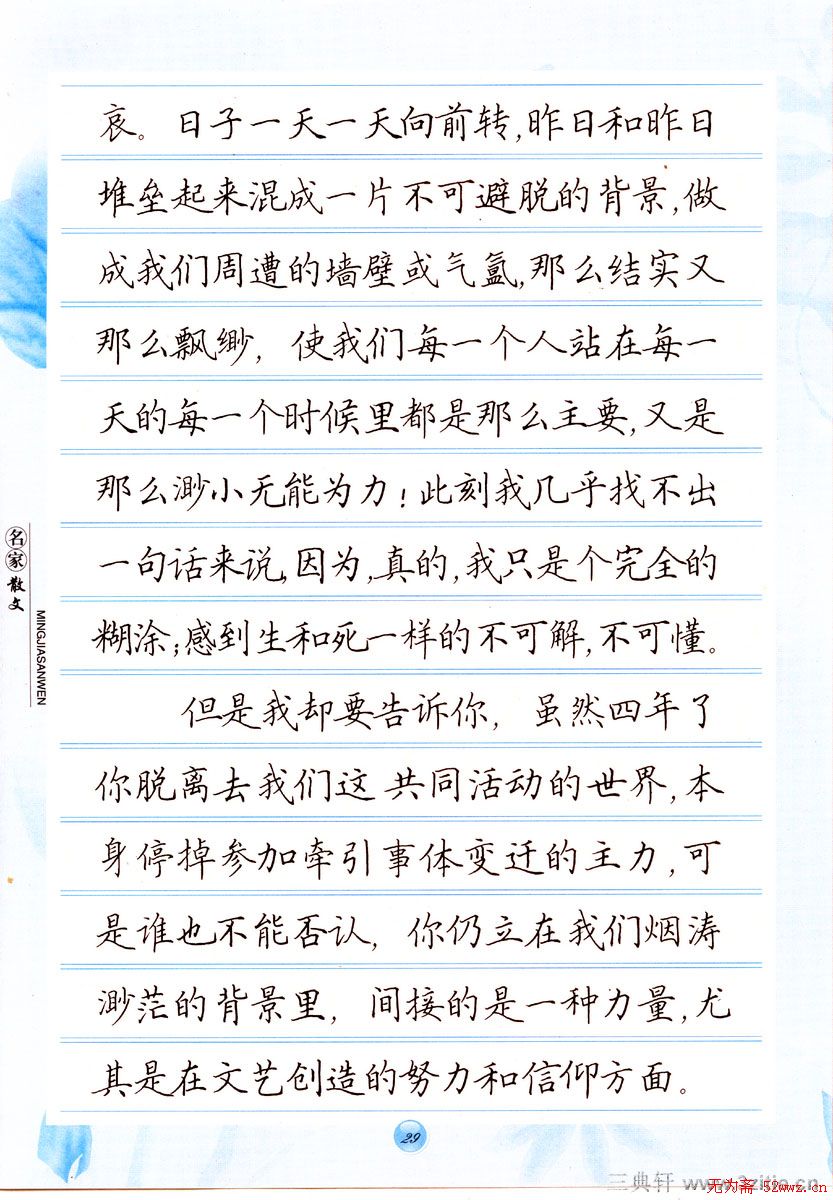 哀。日子一天一天向前转,昨日和昨日
堆垒起来混成一片不可避脱的背景,做
成我们周遭的墙壁或气氲,那么结实又
那么飘缈，使我们每一个人站在每一
天的每一个时候里都是那么主要,又是
那么渺小无能为力!此刻我几乎找不出
一句话来说,因为,真的,我只是个完全的
糊涂;感到生和死一样的不可解,不可懂。
但是我却要告诉你，虽然四年了
你脱离去我们这共同活动的世界,本
身停掉参加牵引事体变迁的主力,可
是谁也不能否认，你仍立在我们烟涛
渺茫的背景里，间接的是一种力量,尤
其是在文艺创造的努力和信仰方面。
名家散文
MINGJIASANWEN
29
三典轩 www.3zitie.cn
无为斋 52wwz.cn